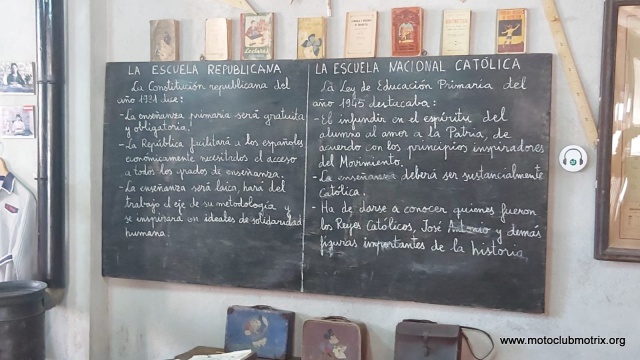 LA ESCUELA REPUBLICANA
La Constitución republicana del
año 1931 dice:
- La enseñanza primaria será gratuita
y obligatoria.
- La República facilitará a los españoles
económicamente necesitados el acceso
a todos los grados de enseñanza.
- La enseñanza será laica, hará del
trabajo el eje de su metodología y
se inspirará en ideales de solidaridad
humana.
LA ESCUELA NACIONAL CATÓLICA
La Ley de Educación Primaria del
año 1945 destacaba:
- El infundir en el espíritu del
alumno al amor a la Patria, de
acuerdo con los principios inspiradores
del Movimiento.
- La enseñanza deberá ser sustancialmente
Católica.
- Ha de darse a conocer quienes fueron
los Reyes Católicos, José Antonio y demás
figuras importantes de la historia
www.motoclubmotrix.org